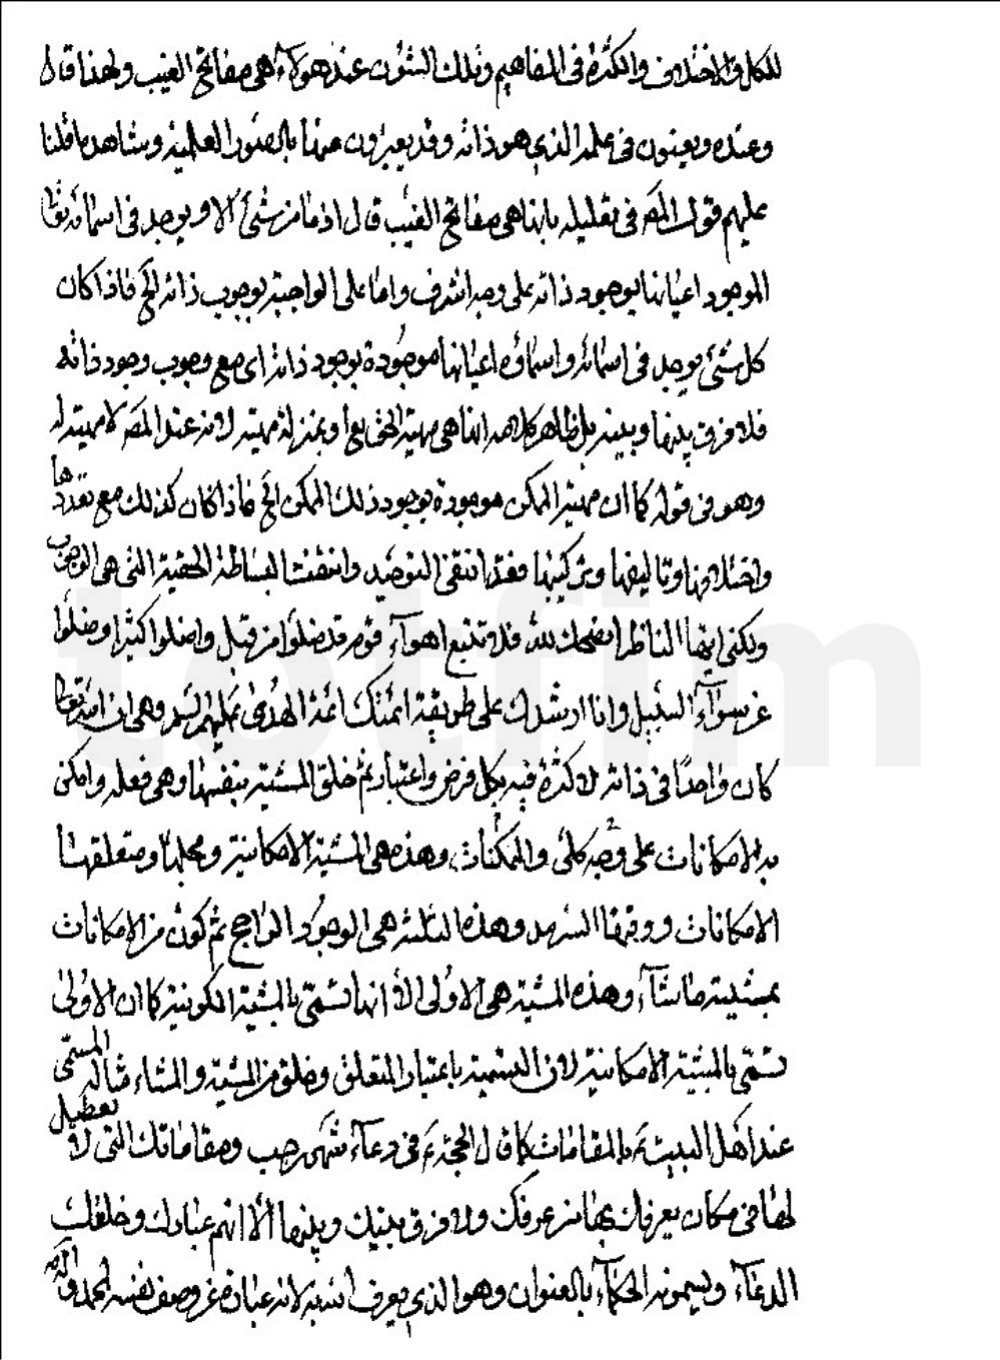 للكل والاختلاف والكثرة فى المفاهيم وتلك الشئون عند هولاء هى مفاتح الغيب ولهذا قال
وعنده ويعنون فى علمه الذى هو ذاته وقد يعبرون عنها بالصور العلمية وشاهد ما قلنا
عليهم قول المص فى تعليله بانها هى مفاتح الغيب قال اذ ما من شئ الا ويوجد فى اسمائه تعا
الموجود اعيانها بوجود ذاته على وجه اشرف واما على الواجبية بوجوب ذاته الخ فاذا كان
كل شئ يوجد فى اسمائه واسماؤه اعيانها موجودة بوجود ذاته اى مع وجوب وجود ذاته
فلا فرق بينها وبينه بل ظاهر كلامه انها هى مهية الحق تعا او بمنزلة مهيته لانه عند المص لا مهية له
وهو فى قوله كما ان مهية الممكن موجودة بوجود ذلك الممكن الخ فاذا كان كذلك مع تعددها
واختلافها وتاليفها وتركيبها فقد انتفى التوحيد وانتفت البساطة الحقية التى هى الوجوب
ولكن ايها الناظر انصحك لله فلا تتبع اهواء قوم قد ضلوا من قبل واضلوا كثيرا وضلوا
عن سواء السبيل وانا ارشدك على طريقة ائمتك ائمة الهدى عليهم السلم وهى ان الله تعا
كان واحدا فى ذاته لا كثرة فيه بكل فرض واعتبار ثم خلق المشية بنفسها وهى فعله وامكن
به الامكانات على وجه كلى والممكنات وهذه هى المشية الامكانية ومحلها ومتعلقها
الامكانات ووقتها السرمد وهذه الثلثة هى الوجود الراجح ثم كون من الامكانات
بمشيته ما شاء وهذه المشية هى الاولى الا انها تسمى بالمشية الكونية كما ان الاولى
تسمى بالمشية الامكانية لان التسمية باعتبار المتعلق وخلق من المشية والمشاء مثاله المسمى
عند اهل البيت ع بالمقامات كما قال الحجة ع فى دعاء شهر رجب ومقاماتك التى لا تعطيل
لها فى مكان يعرفك بها من عرفك ولا فرق بينك وبينها الا انهم عبادك وخلقك
الدعاء ويسمونه الحكماء بالعنوان وهو الذى يعرف الله به لانه عبارة عن وصف نفسه